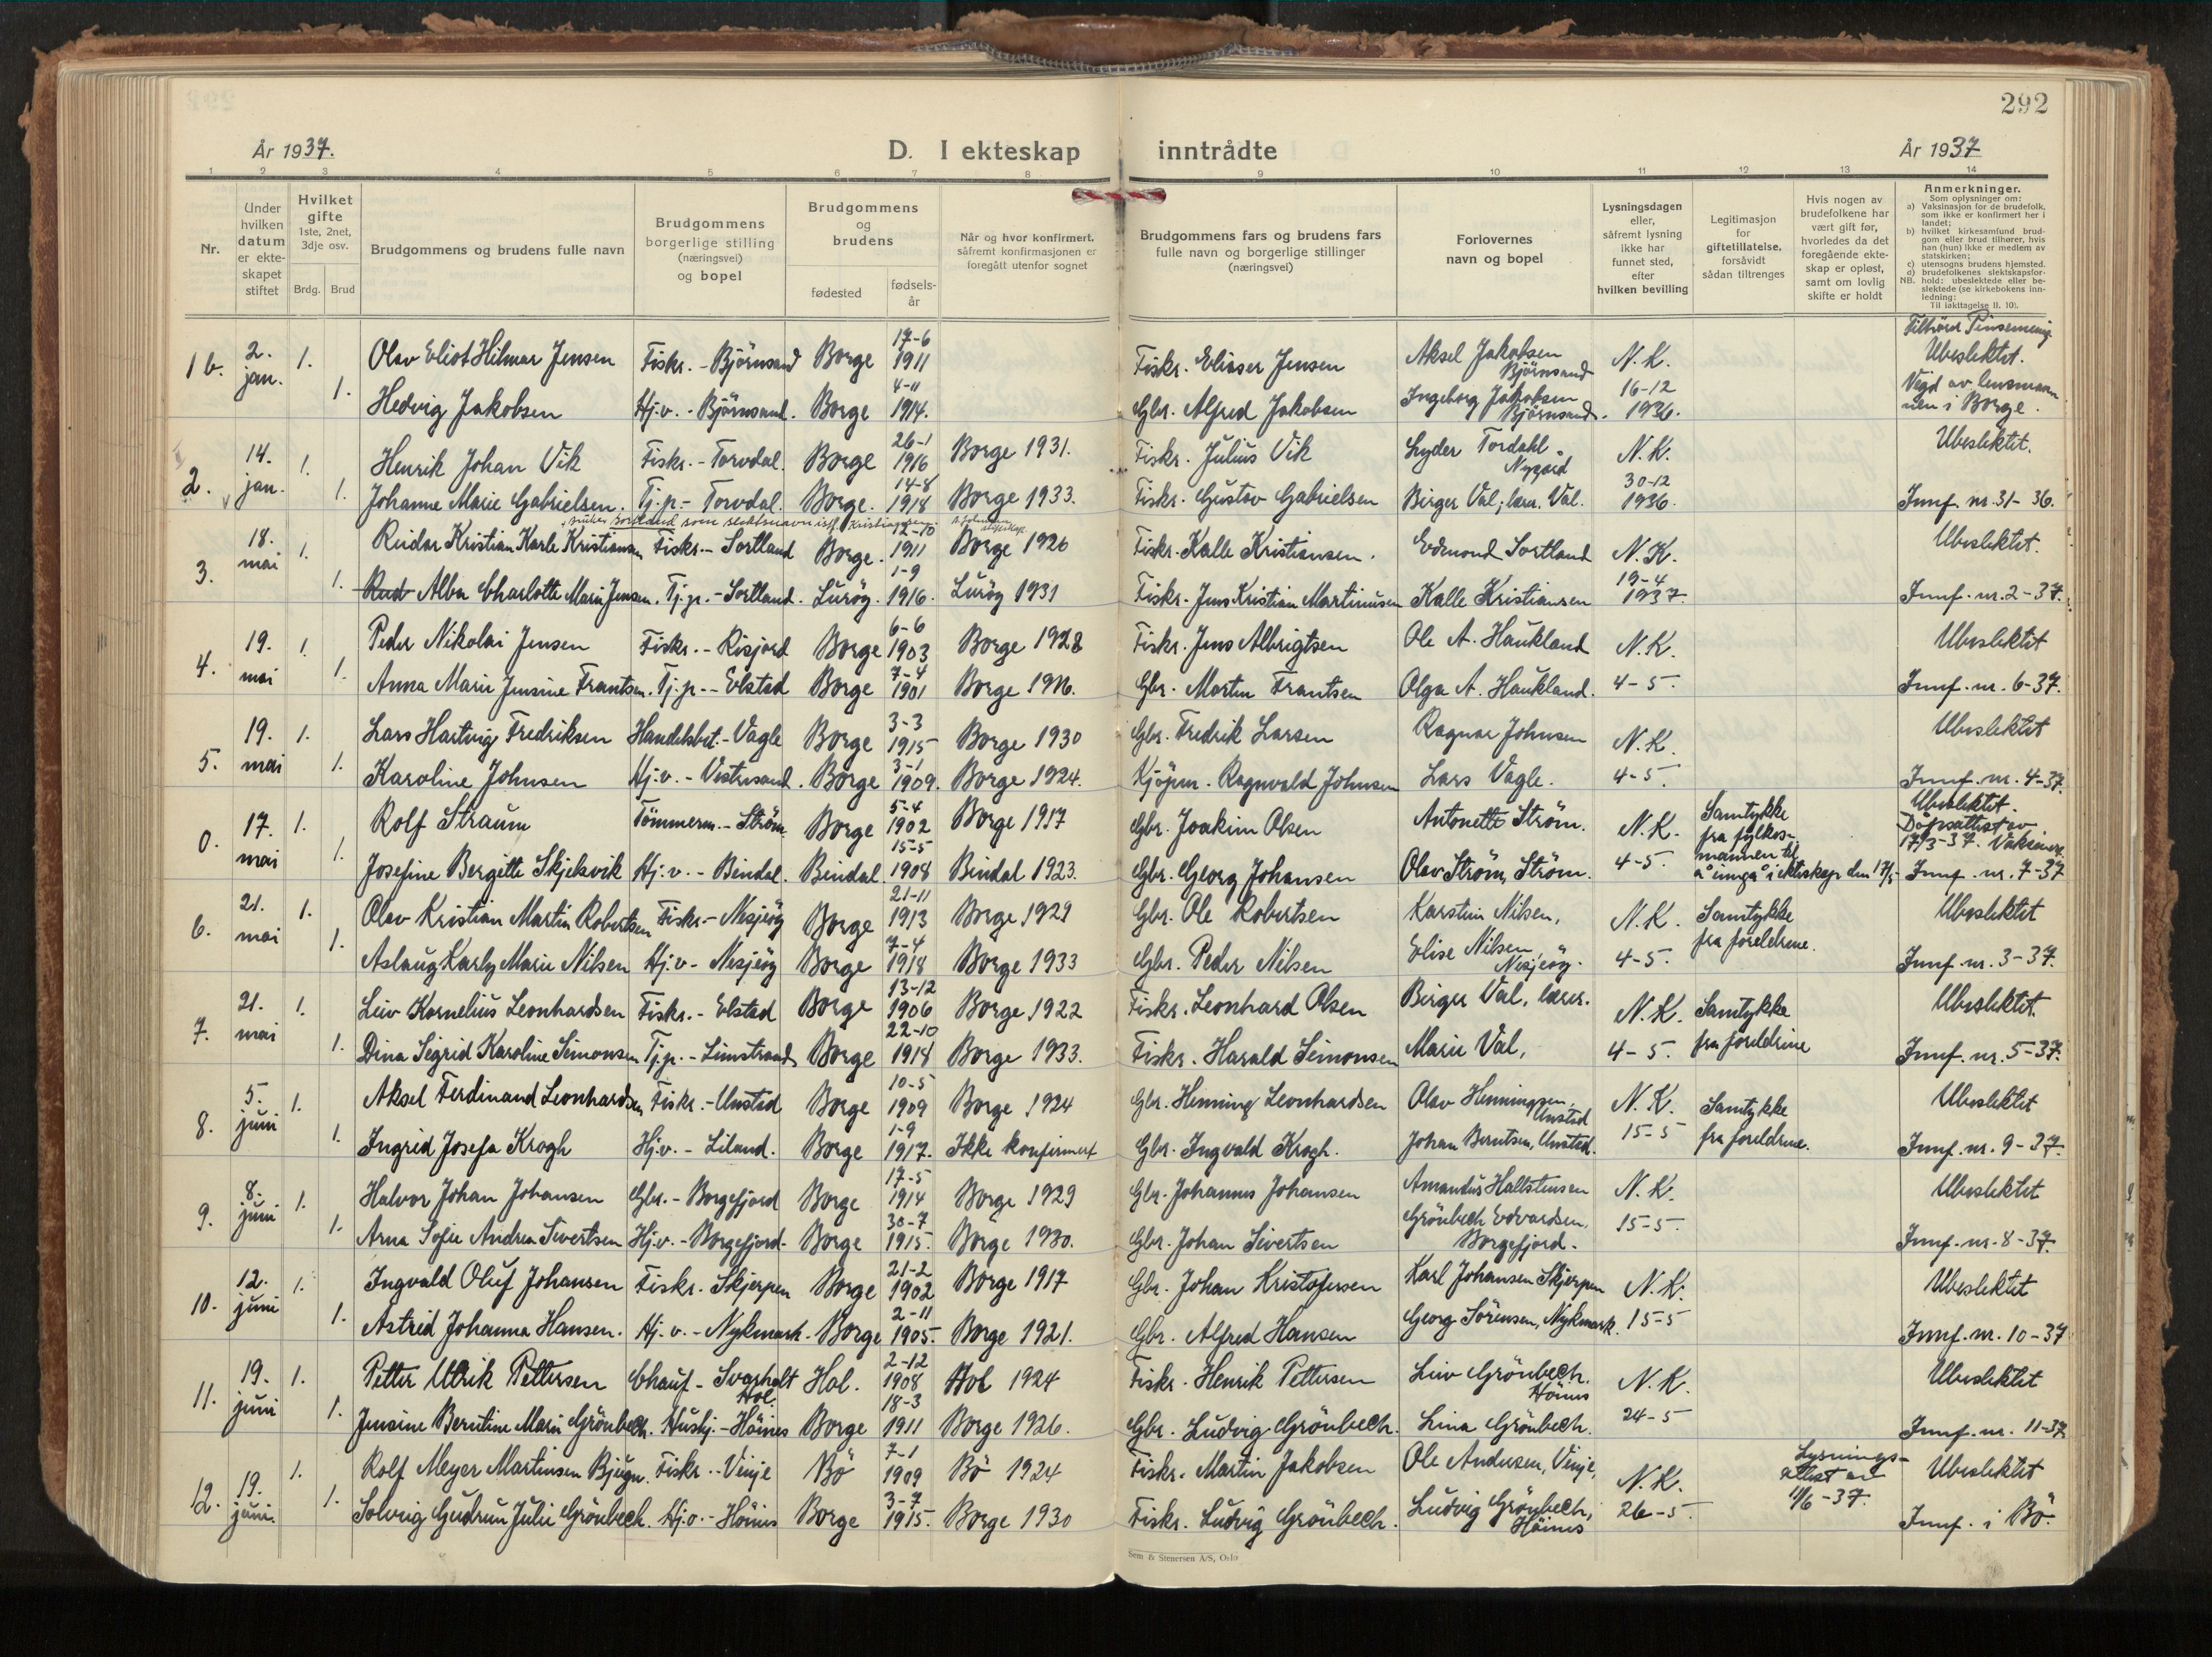 292
År 1937.
D. I ekteskap inntrådte
År 1937
1 2 3 4 5 6 7 8 9 10 11 12 13 14
Nr.
Under hvilken datum er ekte-skapet stiftet
Hvilket gifte 1ste, 2net, 3dje osv.
Brdg. Brud
Brudgommens og brudens fulle navn
Brudgommens borgerlige stilling (næringsvei) og bopel
Brudgommens og brudens
fødested
fødsels-år
Når og hvor konfirmert, såfremt konfirmasjonen er foregått utenfor sognet
Brudgommens fars og brudens fars fulle navn og borgerlige stillinger (næringsvei)
Forlovernes navn og bopel
Lysningsdagen eller, såfremt lysning ikke har funnet sted, efter hvilken bevilling
Legitimasjon for giftetillatelse, forsåvidt sådan tiltrenges
Hvis nogen av brudefolkene har vært gift før, hvorledes da det foregående ekte-skap er opløst, samt om lovlig skifte er holdt
Anmerkninger.
Som oplysninger om:
a) Vaksinasjon for de brudefolk, som ikke er konfirmert her i landet;
b) hvilket kirkesamfund brud-gom eller brud tilhører, hvis han (hun) ikke er medlem av statskirken;
c) utensogns brudens hjemsted.
d) brudefolkenes slektskapsfor-hold: ubeslektede eller be-slektede (se kirkebokens inn-ledning:
NB. Til iakttagelse II. 10).
1 b. 2. jan. 1. Olav Eliot Hilmar Jensen Fiskr. - Björnsand Borge 17-6 1911 Fiskr. Eliaser Jensen Aksel Jakobsen Björnsand N.K. Tilhörer Pinsemenig. Ubeslektet.
1. Hedvig Jakobsen Hj.v. - Björnsand. Borge 4-11 1914. Gbr. Alfred Jakobsen Ingeborg Jakobsen Björnsand. 16-12 1936. Vigd av lensmannen i Borge.
2. 14. jan. 1. Henrik Johan Vik Fiskr. - Torvdal. Borge 26-1 1916 Borge 1931. Fiskr. Julius Vik Lyder Tordahl Nygård N.K. Ubeslektet.
1. Johanne Marie Gabrielsen. Tj.p. - Torvdal. Borge. 14-8 1918 Borge 1933. Fiskr. Gustav Gabrielsen Birger Val, lærer. Val. 30-12 1936. Innf. nr. 31-36.
bruker Sortland som slektsnavn istf. Kristiansen.
3. 18. mai 1. Reidar Kristian Karle Kristiansen Fiskr. - Sortland Borge. 12-10 1911 Borge 1926 Fiskr. Kalle Kristiansen. Edmond Sortland N.K. Ubeslektet.
1. Alba Charlotte Marie Jensen. Tj.p. - Sortland. Luröy. 1-9 1916. Luröy 1931 Fiskr. Jens Kristian Martinusen Kalle Kristiansen 19-4 1937. Innf. nr. 2-37.
4. 19. mai 1. Peder Nikolai Jensen Fiskr. - Risjord Borge 6-6 1903 Borge 1928 Fiskr. Jens Albrigtsen Ole A. Haukland N.K. Ubeslektet
1. Anna Marie Jensine Frantsen. Tj.p. - Elstad Borge 7-4 1901 Borge Gbr. Martin Frantsen Olga A. Haukland. 4-5. Innf. nr. 6-37.
5. 19. mai 1. Lars Hartvig Fredriksen Handelsbet. - Vagle Borge 3-3 1915 Borge 1930 Gbr. Fredrik Larsen Ragnar Johnsen N.K. Ubeslektet
1. Karoline Johnsen Hj.v. - Vestresand. Borge 3-1 1909. Borge 1924. Kjöpm. Ragnvald Johnsen Lars Vagle. 4-5. Innf. nr. 4-37.
0. 17. mai 1. Rolf Straum Tömmerm. - Ström Borge 5-4 1902 Borge 1917 Gbr. Joakim Olsen Antonette Ström. N.K. Samtykke fra fylkes-mannen til å inngå i ekteskap den 17/5. Ubeslektet. Dåpsattest av 17/3-37. Vaksinert.
1. Josefine Bergitte Skjelsvik Hj.v. - Bindal. Bindal 15-5 1908 Bindal 1923. Gbr. Georg Johansen Olav Ström, Ström. 4-5. Innf. nr. 7-37
6. 21. mai 1. Olav Kristian Martin Robertsen Fiskr. - Nesjeöy Borge 21-11 1913 Borge 1929 Gbr. Ole Robertsen Karstein Nilsen, N.K. Samtykke fra foreldrene. Ubeslektet
1. Aslaug Karly Marie Nilsen Hj.v. - Nesjeöy Borge 7-4 1918 Borge 1933 Gbr. Peder Nilsen Elise Nilsen Nesjeöy. 4-5. Innf. nr. 3-37.
7. 21. mai 1. Leiv Kornelius Leonhardsen Fiskr. - Elstad Borge 13-12 1906 Borge 1922 Fiskr. Leonhard Olsen Birger Val, lærer. N.K. Samtykke fra foreldrene Ubeslektet.
1. Dina Sigrid Karoline Simonsen Tj.p. - Limstrand Borge 22-10 1918 Borge 1933. Fiskr. Harald Simonsen Marie Val, 4-5. Innf. nr. 5-37.
8. 5. juni 1. Aksel Ferdinand Leonhardsen Fiskr. - Unstad Borge 10-5 1909 Borge 1924 Gbr. Henning Leonhardsen Olav Henningsen, Unstad N.K. Samtykke fra foreldrene. Ubeslektet
1. Ingrid Josefa Krogh Hj.v. - Liland. Borge 1-9 1917. Ikke konfirmert Gbr. Ingvald Krogh. Johan Berntsen, Unstad. 15-5 Innf. nr. 9-37.
9. 8. juni 1. Halvor Johan Johansen Gbr. - Borgefjord Borge 17-5 1914 Borge 1929 Gbr. Johannes Johansen Amandus Hallstensen N.K. Ubeslektet
1. Arna Sofie Andrea Sivertsen Hj.v. - Borgefjord. Borge 30-7 1915. Borge 1930. Gbr. Johan Sivertsen Grönbech Edvardsen, Borgefjord. 15-5 Innf. nr. 8-37.
10. 12. juni 1. Ingvald Oluf Johansen Fiskr. Skjerpen Borge 21-2 1902 Borge 1917 Gbr. Johan Kristofersen Karl Johansen Skjerpen N.K. Ubeslektet
1. Astrid Johanna Hansen. Hj.v. - Nykmark. Borge 2-11 1905. Borge 1921. Gbr. Alfred Hansen Georg Sörensen, Nykmark. 15-5 Innf. nr. 10-37
11. 19. juni 1. Petter Ulrik Pettersen Chauf. - Svarholt Hol. Hol. 2-12 1908 Hol 1924 Fiskr. Henrik Pettersen Leiv Grönbech. Höines N.K. Ubeslektet
1. Jensine Berntine Marie Grönbech. Hushj. - Höines Borge 18-3 1911 Borge 1926. Gbr. Ludvig Grönbech. Lina Grönbech. 24-5 Innf. nr. 11-37
12. 19. juni. 1. Rolf Meyer Martinsen Bjugn. Fiskr. - Vinje Bö 7-1 1909 Bö 1924 Fiskr. Martin Jakobsen Ole Andersen, Vinje, N.K. Lysnings-attest av 11/6-37. Ubeslektet
1. Solveig Gudrun Julie Grönbech. Hj.v. - Höines Borge 3-7 1915. Borge 1930 Fiskr. Ludvig Grönbech. Ludvig Grönbech, Höines 26-5. Innf. i Bö.
Sem & Stenersen A/S, Oslo